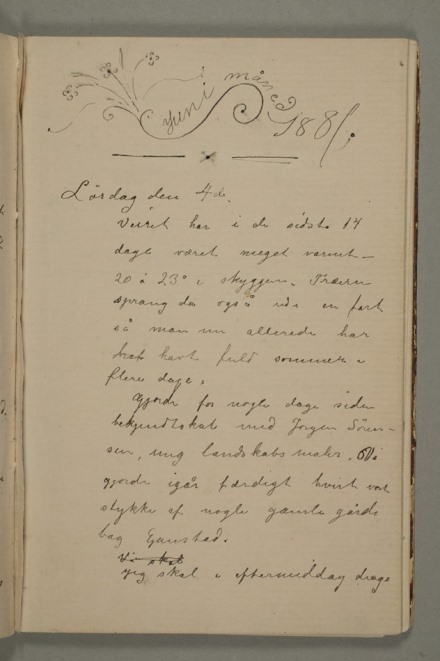 Juni måned
1881.
Lördag den 4de.
Veiret har i de sidste 14
dage været meget varmt –
20 à 23° i skyggen. Træerne
sprang da også ud i en fart
så man nu allerede har
havt fuld sommer i
flere dage.
Gjorde for nogle dage siden
bekjendtskab med Jørgen Sören-
sen, ung landskabsmaler. Vi
gjorde igår færdigt hvert vort
stykke af nogle gamle gårde
bag Grünstad.
Jeg skal i eftermiddag drage